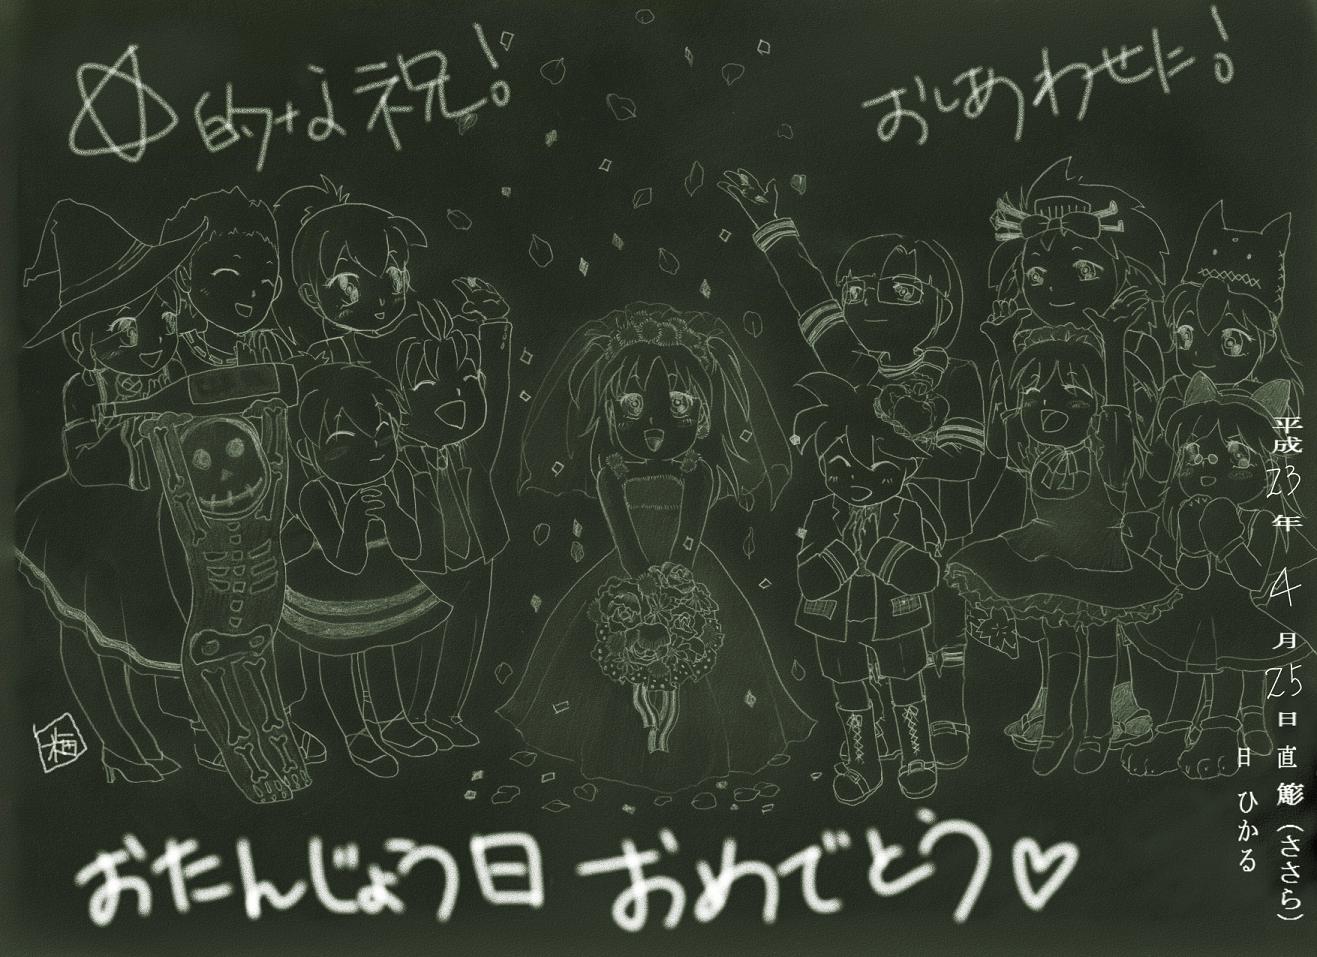 ☆的な祝！
おしあわせに！
平成23年4月25日
直
（ささら）
日
ひかる
おたんじょう日 おめでとう♡